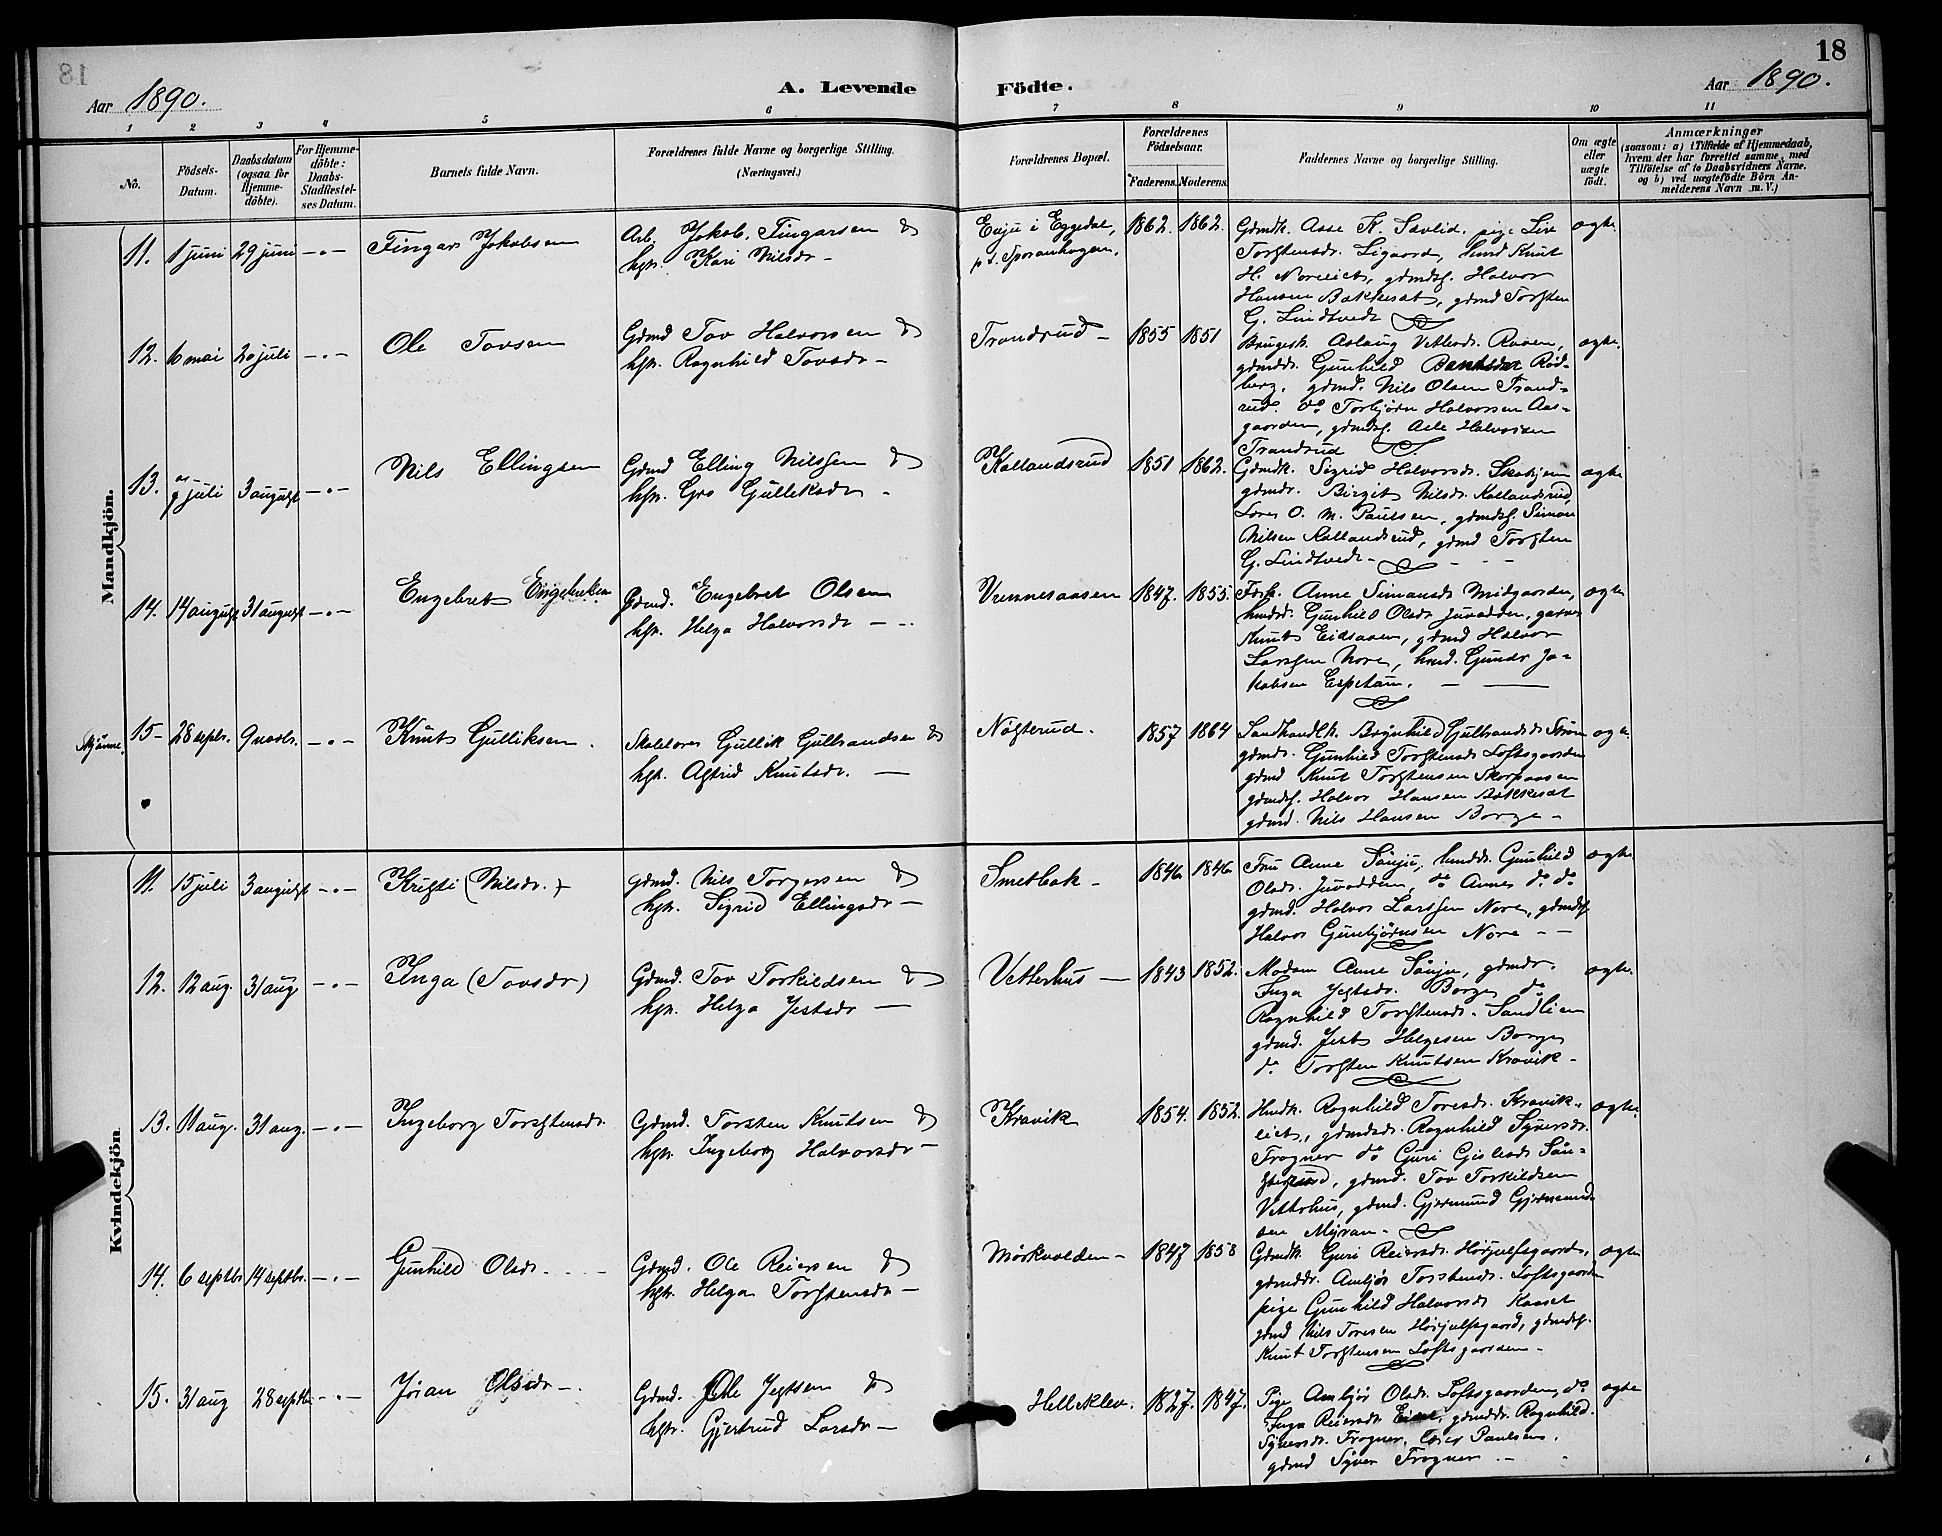 18
Aar 1890.
A. Levende Födte.
Aar 1890.
1 2 3 4 5 6 7 8 9 10 11
No.
Födsels-Datum.
Daabsdatum (ogsaa for Hjemmedöbte).
For Hjemmedöbte: Daabs-Stadfæstelses Datum.
Barnets fulde Navn.
Forældrenes fulde Navne og borgerlige Stilling. (Næringsvei.)
Forældrenes Bopæl.
Forældrenes Födselsaar.
Faderens. Moderens.
Faddernes Navne og borgerlige Stilling.
Om ægte eller uægte födt.
Anmærkninger
(saasom: a) i Tilfælde af Hjemmedaab, hvem der har forrettet samme, med Tilföielse af to Daabsvidners Navne. og b) ved uægtefödte Börn Anmelderens Navn m. V.)
Mandkjön.
11. 1 juni 29 juni — Fingar Jakobsen
Arb. Jakob Fingarsen &
hstr. Kari Nilsdr —
Enju i Eggedal, 1862. 1862. ægte.
p. t. Sporanhogen.
Gdmdk. Aase K. Savlid, pige Live
Torstensdr. Ligaard, hmd Knut
H. Noreiet, gdmds. Halvor
Hansen Bakkesæt, gdmd Torsten
G. Lindtvedt
12. 6 mai 20 juli — Ole Tovsen
Gdmd Tov Halvorsen &
hstr. Ragnhild Tovsdr —
Trandrud — 1855 1851 ægte.
Brugesk. Aslaug Vetlesdr. Ruaen,
gdmddr. Gunhild Rød-
berg, gdmd. Nils Olsen Trand-
rud. do Torbjörn Halvorsen Aas-
gaarden, gdmds. Asle Halvorsen
Trandrud
13. 9 juli 3 august — Nils Ellingsen
Gdmd Elling Nilssen &
hstr. Gro Gulleksdr —
Kallandsrud 1851 1862. ægte
Gdmdk. Sigrid Halvorsdr. Skahjem
gdmdr. Birgit Nilsdr. Kallandsrud,
Lærer O. M. Paulsen, gdmds. Simon
Nilsen Kallandsrud, gdmd Torsten
G. Lindtvedt —
14. 14 august 31 august — Engebret Engebretsen
Gdmd. Engebret Olsen
hstr. Helga Halvorsdr —
Vrennesaasen 1847. 1855. ægte
Anne Simonsdr Midgaarden,
hmdd. Gunhild Olsdr Juvodden, garver
Knut Eidsaaen, gdmd Halvor
Larssen Nore, hmd. Gundr Ja-
kobsen Espetun. —
15 — 28 septbr. 9 novbr. — Knut Gulliksen.
Skolelærer Gullik Gulbrandsen &
hstr. Astrid Knutsdr. —
Nøsterud. 1857 1864 ægte.
Landhandlk. Bergnhild Gulbrandsdr Strøm
gdmdr. Gunhild Torstensdr Loftsgaarden
gdmd Knut Torstensen Skorpaasen
gdmds. Halvor Hansen Bakkesæt
gdmd. Nils Hansen Borge —
Kvindekjön
11. 15 juli 3 august — Kristi (Nilsdr.)
Gdmd. Nils Torgersen &
hstr. Sigrid Ellingsdr —
Smetbak — 1846 1846 ægte.
Fru Anne Sönju, hmddr. Gunhild
Olsdr. Juvodden, do Anne do do
gdmd. Halvor Larssen Nore, gdmds.
Halvor Gunbjörnsen Nore —
12. 12 aug. 31 aug — Inga (Tovsdr)
Gdmd. Tov Torkildsen &
hstr. Helga Jestsdr —
Vetterhus — 1843 1852. ægte.
Madam Anne Sönju, gdmdr.
Inga Jestsdr. Borge do
Ragnhild Torstensdr. Sandlien
gdmd. Jest Helgesen Borge
do Torsten Knutsen Kravik —
13. 11 aug. 31 aug. — Ingeborg Torstensdr.
Gdmd. Torsten Knutsen &
hstr. Ingeborg Halvorsdr —
Kravik 1854. 1852. ægte.
Hmdk. Ragnhild Toresdr. Kravik-
eiet, gdmdsdr. Ragnhild Syversdr.
Frogner do Guri Gislesdr Sön-
gdmd. Tov Torkildsen
Vetterhus, gdmd. Gjermund Gjermund-
sen Myran —
14. 6 septbr 14 septbr. — Gunhild Olsdr.
Gdmd. Ole Reiersen &
hstr. Helga Torstensdr —
Mörkvolden — 1847 1858 ægte
Gdmdk. Guri Reiersdr. Hörjulfsgaard,
gdmddr. Ambjör Torstensdr. Loftsgaarden
pige Gunhild Halvorsdr Kaaset
gdmd Nils Toresen Hörjulfsgaard, gdmds.
Knut Torstensen Loftsgaarden —
15. 31 aug 28 septbr — Jöran Olsdr —
Gdmd. Ole Jestsen &
hstr. Gjertrud Larsdr —
Helleklev. 1827. 1847. ægte
Pige Ambjör Olsdr. Loftsgaarden, do
Inga Reiersdr. gdmddr. Ragnhild
Syversdr. Frogner, Paulsen,
gdmd Syver Frogner —